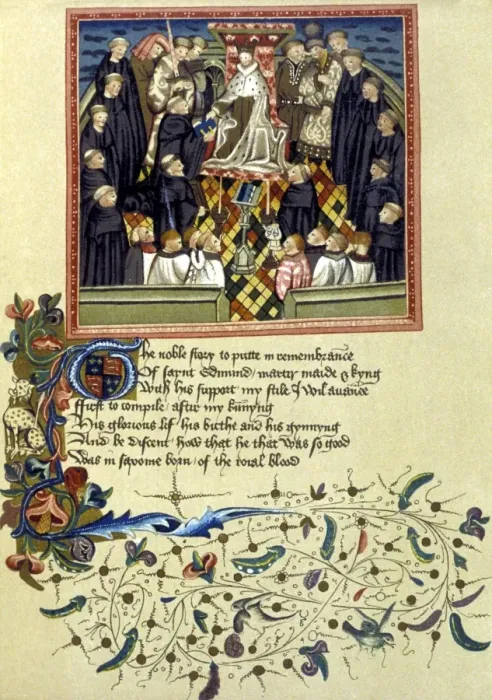 The noble story to putte in remembrance
Of saynt Edmund martir maide & kyng
With his support my stile I wil avance
ffirst to compile aftir my kunnyng
His glorious lif his birthe and his gynnyng
And be discent how that he that was so good
Was in saxonie born of the roial blood